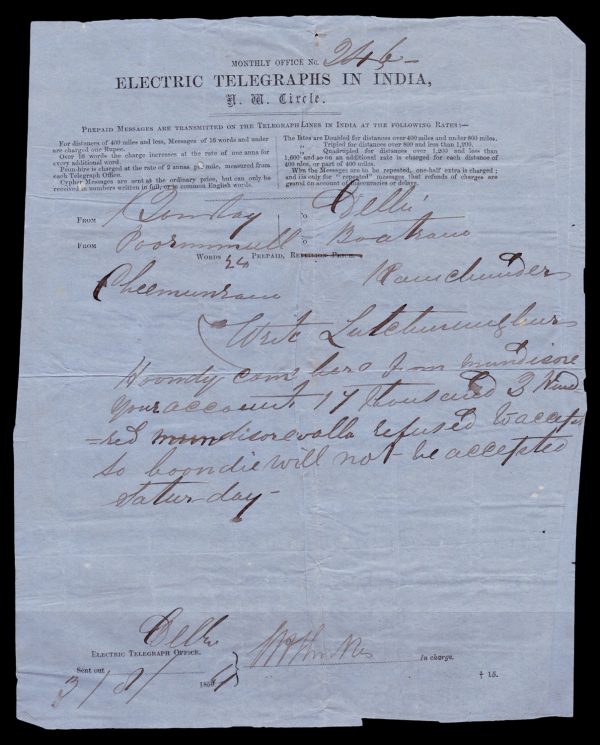 MONTHLY OFFICE No. 246
ELECTRIC TELEGRAPHS IN INDIA,
N. W. Circle.
PREPAID MESSAGES ARE TRANSMITTED ON THE TELEGRAPH LINES IN INDIA AT THE FOLLOWING RATES:—
For distances of 400 miles and less, Messages of 16 words and under
are charged one Rupee.
Over 16 words the charge increases at the rate of one anna for
every additional word.
Peon-hire is charged at the rate of 2 annas per mile, measured from
each Telegraph Office.
Cypher Messages are sent at the ordinary price, but can only be
received in numbers written in full, or in common English words.
The Rates are Doubled for distances over 400 miles and under 800 miles.
„ Tripled for distances over 800 and less than 1,200.
„ Quadrupled for distances over 1,200 and less than
1,600 and so on an additional rate is charged for each distance of
400 miles, or part of 400 miles.
When the Messages are to be repeated, one-half extra is charged;
and it is only for "repeated" messages that refunds of charges are
granted on account of inaccuracies or delays.
FROM Bombay TO Delhi
FROM Poorunmull TO
WORDS 24 PREPAID, REPETITION PRICE.
Ramchunder
Write
Hoondy come here from mundisore
your account 17 thousand 3 Hund
=red mundisorevalla refused to accept
so hoondie will not be accepted
Saturday-
Delhi
ELECTRIC TELEGRAPH OFFICE.
In charge.
Sent out
3/8/ 185
† 15.